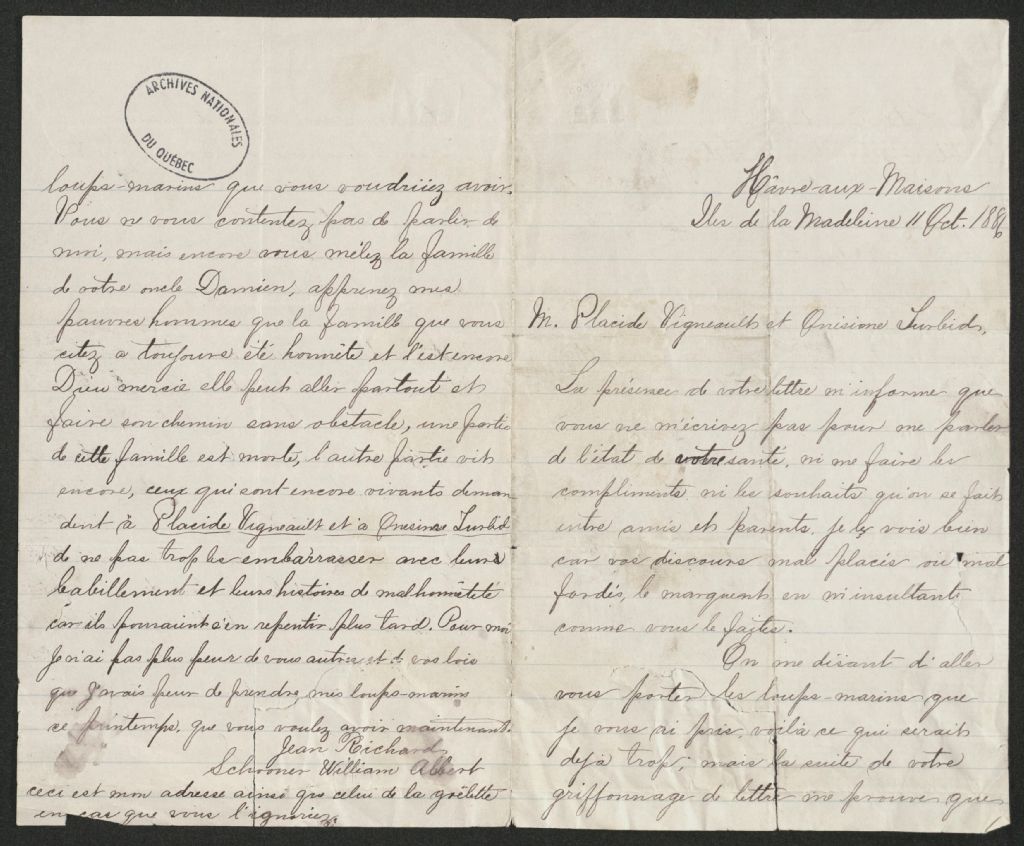 Hâvre-aux-Maisons
Iles de la Madeleine 11 Oct. 1886
M. Placide Vigneault et Onisione Turbid,
La présence de votre lettre m'informe que
vous ne m'écrivez pas pour me parler
de l'état de votre santé, ni me faire les
compliments ni les souhaits qu'on se fait
entre amis et parents, je le vois bien
car vos discours mal placés ou mal
fardés, le marquent en m'insultant
comme vous le faites.
On me disant d'aller
vous porter les loups-marins que
je vous ai pris, voilà ce qui serait
dejà trop; mais la suite de votre
griffonnage de lettre me prouve que
ARCHIVES NATIONALES
DU QUÉBEC
loups-marins que vous voudriiez avoir.
Vous ne vous contentez pas de parler de
moi, mais encore vous mêlez la famille
de votre oncle Damien, apprenez mes
pauvres hommes que la famille que vous
citez a toujours été honnête et l'est encore
Dieu mercie elle peut aller partout et
faire son chemin sans obstacle, une partie
de cette famille est morte, l'autre partie vit
encore, ceux qui sont encore vivants deman
dent à Placide Vigneault et à Onesime Turbid
de ne pas trop les embarrasser avec leurs
babillement et leurs histoires de malhonnêteté
car ils pouraient s'en repentir plus tard. Pour moi
Je n'ai pas plus peur de vous autres et de vos lois
que j'avais peur de prendre mes loups-marins
ce printemps, que vous voulez avoir maintenant.
Jean Richard
Schooner William Albert
ceci est mon adresse ainsi que celui de la goëlette
en cas que vous l'ignoriez.